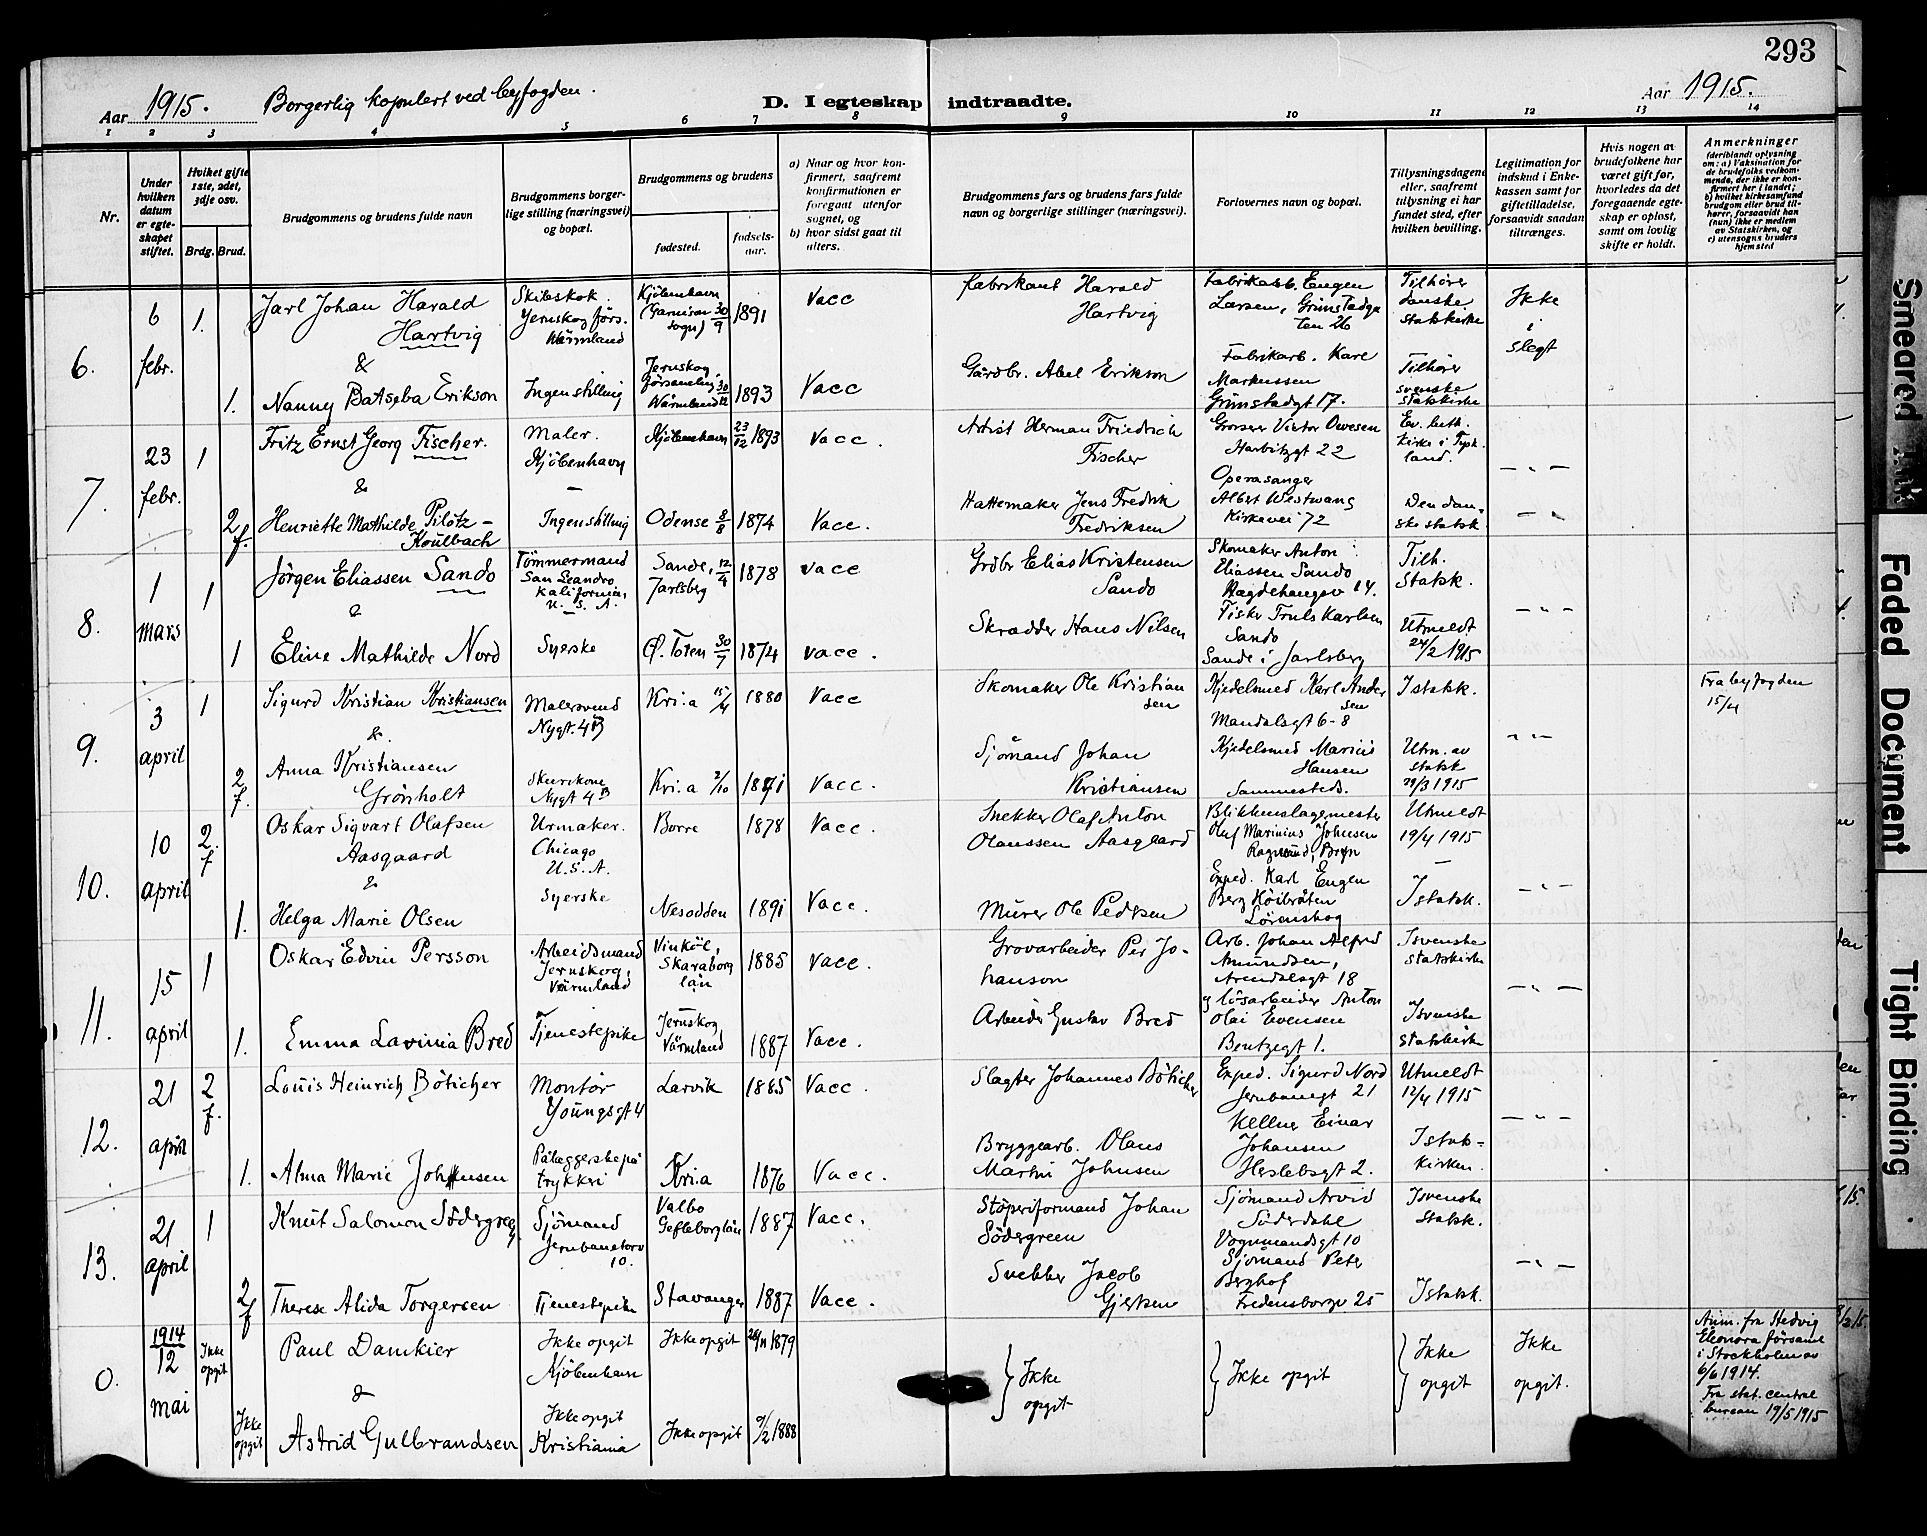 293
Aar 1915. Borgerlig kopulert ved byfogden.
D. I egteskap indtraadte.
Aar 1915.
1 2 3 4 5 6 7 8 9 10 11 12 13 14
Nr.
Under hvilken datum er egteskapet stiftet.
Hvilket gifte 1ste, 2det, 3dje osv.
Brdg. Brud.
Brudgommens og brudens fulde navn
Brudgommens borgerlige stilling (næringsvei) og bopæl.
Brudgommens og brudens
fødested.
fødselsaar.
a) Naar og hvor konfirmert, saafremt konfirmationen er foregaat utenfor sognet, og
b) hvor sidst gaat til alters.
Brudgommens fars og brudens fars fulde navn og borgerlige stillinger (næringsvei).
Forlovernes navn og bopæl.
Tillysningsdagene eller, saafremt tillysning ei har fundet sted, efter hvilken bevilling.
Legitimation for indskud i Enkekassen samt for giftetilladelse, forsaavidt saadan tiltrænges.
Hvis nogen av brudefolkene har været gift før, hvorledes da det foregaaende egteskap er opløst, samt om lovlig skifte er holdt.
Anmerkninger
(deriblandt oplysning om: a) Vaksination for de brudefolks vedkommende, der ikke er konfirmert her i landet; b) hvilket kirkesamfund brudgom eller brud tilhører, forsaavidt han (hun) ikke er medlem av Statskirken, og c) utensogns bruders hjemsted
6. 6 febr. 1.
Jarl Johan Harald Hartvig
Jernskog förs. Wärmland
Kjöbenhavn (Garnison sogn) 30/9 1891
Vacc
Fabrikant Harald Hartvig
Fabrikarb. Eugen Larsen, Grimstadgaten 26
Tilhører danske statskirke
Ikke i slegt
&
1. Nanny Batseba Erikson
Ingen stilling
Jernskog församling Wärmland 30/12 1893
Vacc
Gårdbr. Abel Erikson
Fabrikarb. Karl Markussen Grimstadgt 17.
Tilhører svenske statskirke
7. 23 febr. 1
Fritz Ernst Georg Fischer.
Maler. Kjöbenhavn
Kjöbenhavn 23/12 1893
Vacc.
Artist Herman Friedrich Fischer
Grosserer Victor Owesen Harbitzgt 22
Ev. luth. kirke i Tyskland.
— " —
&
2 f. Henriette Mathilde Pilötz-Koulbach
Ingen stilling
Odense 8/8 1874
Vacc.
Hattemaker Jens Fredrik Fredriksen
Operasanger Albert Westwang Kirkevei 72
Den danske statsk.
— " —
8. 1 mars 1
Jörgen Eliassen Sando
Tömmermand San Leandro, Kalifornien, U.S.A.
Sande, Jarlsberg 12/4 1878
vacc
Grdbr Elias Kristensen Sando
Skomaker Anton Eliassen Sando 14.
Tilh. Statsk.
— " —
&
1 Eline Mathilde Nord
Syerske
Ø. Toten 30/7 1874
vacc.
Skrædder Hans Nilsen
Fisker Truls Karlsen Sando Sande i Jarlsberg
Utmeldt 24/2 1915
9. 3 april 1
Sigurd Kristian Kristiansen
Malersvend Nygt. 4B
Kri:a 15/4 1880
Vacc
Skomaker Ole Kristiansen
Kjedelsmed Karl Andersen Mandalsgt 6-8
I statsk.
Fra byfogden 15/4
— " —
&.
2 f. Anna Kristiansen Grönholt
Skurekone Nygt 4B
Kri:a 2/10 1871
Vacc.
Sjömand Johan Kristiansen
Kjedelsmed Marius Hansen Sammesteds.
Utm. av statsk 29/3 1915
10. 10 april 2 f
Oskar Sigvart Olafsen Aasgaard
Urmaker. Chicago U.S.A.
Borre 1878
Vacc.
Snekker Olaf Anton Olaussen Aasgaard
Blikkenslagermester Oluf Marinius Johnsen Bryn
Utmeldt 19/4 1915
&
1. Helga Marie Olsen
Syerske
Nesodden 1891
Vacc.
Murer Ole Pedersen
Exped. Karl Eugen Berg Kölbråten Lörenskog
I statsk.
— " —
11. 15 april 1
Oskar Edvin Persson
Arbeidsmand Jernskog, Värmland
Vinköl, Skaraborg län 1885
Vacc.
Grovarbeider Per Johanson
Arb. Johan Alfred Amundsen, Arendalsgt 18
I svenske statskirke
— " —
1. Emma Lavinia Bred
Tjenestepike
Jernskog Värmland 1887
Vacc.
Arbeider Gustav Bred
Løsarbeider Anton Olai Evensen Bentzegt 1.
I svenske statskirke
12. 21 april 2 f.
Louis Heinrich Böticher
Montör Youngsgt 4
Larvik 1885
Vacc.
Slagter Johannes Böticher
Exped. Sigurd Nord Jernbanegt 21
Utmeldt 12/4 1915
— " —
1. Alma Marie Johnsen
Pålæggerske på trykkeri
Kri:a 1876
Vacc.
Bryggearb. Olaus Martin Johnsen
Kellner Einar Johansen Heslebsgt 2.
I statskirken.
13. 21 april 1
Knut Salomon Södergren
Sjömand Jernbanetorv 10.
Valbo Gefleborg län 1887
Vacc.
Stöperiformand Johan Södergreen
Sjömand Arvid Söderdahl Vognmandsgt 10
I svenske Statsk.
— " —
2 f Therese Alida Torgersen
Tjenestepike
Stavanger 1887
Vacc.
Snekker Jacob Gjertsen
Sjömand Peter Berghof Fredensborgv 25
I statsk.
0. 1914 12 mai Ikke opgit
Paul Damkier
Ikke opgit Kjöbenhavn
Ikke opgit 26/11 1879
Ikke opgit
Ikke opgit
Ikke opgit
Ikke opgit.
Anm. fra Hedvig Eleonora församl i Stockholm av 6/6 1914. Fra stat. central bureau 19/5 1915
&
Ikke opgit Astrid Gulbrandsen
Ikke opgit Kristiania
Ikke opgit 9/2 1888
Smeared Ink
Faded Document
Tight Binding